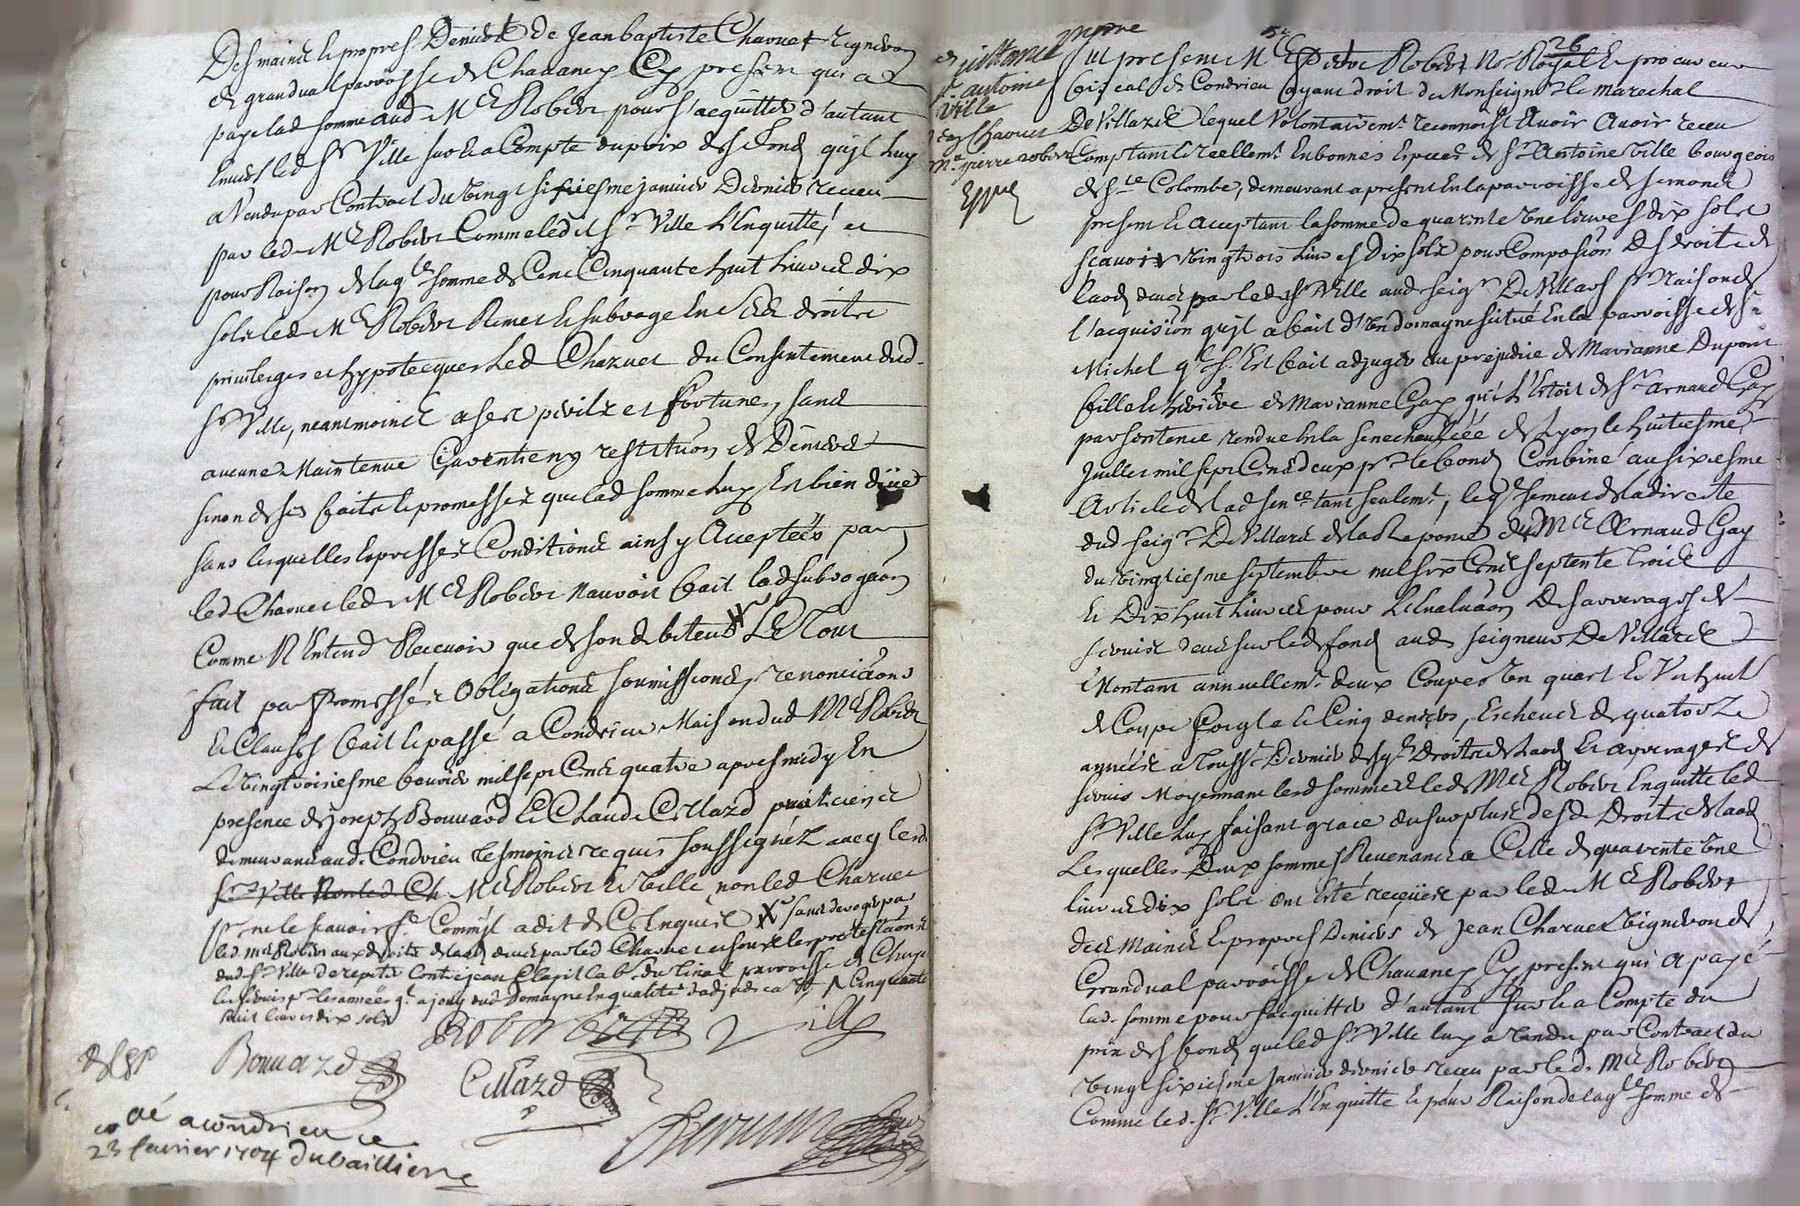 Des mains et propres Deniers de Jean baptiste Charuet vigneron
de grandual parroisse de Chauaney Cy present qui a
paye lad somme aud Me Robert pour s'acquitter d'autant
Enuers led Sr Ville sur la Compte du prix des fonds qu'il luy
a Vendu par Contract du vingt sixiesme januier Dernier receu
par led Me Robert Comme led Sr Ville L'Enquitte, et
pour Raison de laqle somme de Cent Cinquante huit Liures dix
sols led Me Robert Remet et subroge En ses droits
priuileges et hypotecques Led Charuet du Consentement dud
Sr Ville, neantmoins a ses perilz et fortunes, sans
aucune Maintenue Garentie ny restitution de Deniers
sinon de ses faits et promesses que lad somme luy Est bien düe
sans lesquelles expresses Conditions ainsy Acceptées par
led Charuet led Me Robert n'auroit fait lad subrogaon
Comme N'Entend Receuoir que de son debiteur Le Tout
fait par Promesses Obligations soumissions renonciaons
et Clauses fait et passé a Condrieu Maison dud Me Robert
Le vingt troisiesme feurier mil sept Cens quatre apres midy En
presence de joseph Bouuard et Claude Cillard praticiens
demeurant aud Condrieu tesmoins requis soussignéz auec lesd
Srs Ville Non led Ch Me Robert et Ville non led Charuet
pr ne le scauoir fe Comm'il a dit de Ce Enquis X sans deroger par
led Me Robert aux droits de laods deus par led Charuet et sous les protestaons
dud Sr Ville de repeter Contre jean
les seruis pr les années qu'il a jouy dud Domayne En qualité d'adjudicare Cinquante
huit liures dix sols
Robert Ville
Bouuard
Cillard
a Condrieu ce
23 feurier 1704 Dubaillierre
26
quittance
Sr antoine
Ville
Jean Charuet
Me pierre robert
Exped
Fut present Me Pierre Robert Nore Royal et procureur
fiscal de Condrieu ayant droit de Monseignr le marechal
De Villars lequel Volontairemt reconnoist Auoir Auoir receu
Comptant et reellemt En bonnes Especes de Sr Antoine Ville bourgeois
de Ste Colombe, demeurant a present En la parroisse de semons
present et acceptant la somme de quarante Vne Liures dix sols
scauoir vingt trois Liures Dix sols pour Composion des droits de
laods deus par led Sr Ville aud seigr De Villars pr Raison de
l'acquision qu'il a fait d'un domayne situé En la parroisse de St
Michel ql s'Est fait adjuger au prejudice de Marianne Dupont
fille et heritiere de Marianne Gay qui L'Etoit de Sr arnaud Gay
par sentence rendue En la senechaussée de Lyon le huitiesme
Juillet mil sept Cens deux pr le fond Confiné au sixiesme
Article de lad sence tant seulemt, leql se meut de la directe
dud seigr De Villars de la Reponse de Me Arnaud Gay
du vingtiesme septembre mil six Cens septente trois
et Dix huit Liures pour L'Eualuaon Des arrerages de
seruis deus sur led fond aud seigneur De Villars
Montant annuellemt deux Coupes vn quart et Vn huit
de Coupe soigle et Cinq deniers, Escheus de quatorze
années a Touss Dernier desqls Droits de Laods et arrerages de
seruis Moyennant lesd sommes led Me Robert Enquitte led
Sr Ville luy faisant grace du surplus desd Droits de laods
Lesquelles Deux sommes Reuenants a Celle de quarente Vne
liures dix sols ont esté receues par led Me Robert
des Mains et propres Deniers de Jean Charuet vigneron de
Grandual parroisse de Chauaney Cy present qui a payé
lad somme pour s'acquitter d'autant sur la Compte du
prix des fonds que led Sr Ville luy a vendu par Contract du
vingt sixiesme Januier dernier receu par led Me Robert
Comme led Sr Ville L'Enquitte et pour Raison de laqle somme de